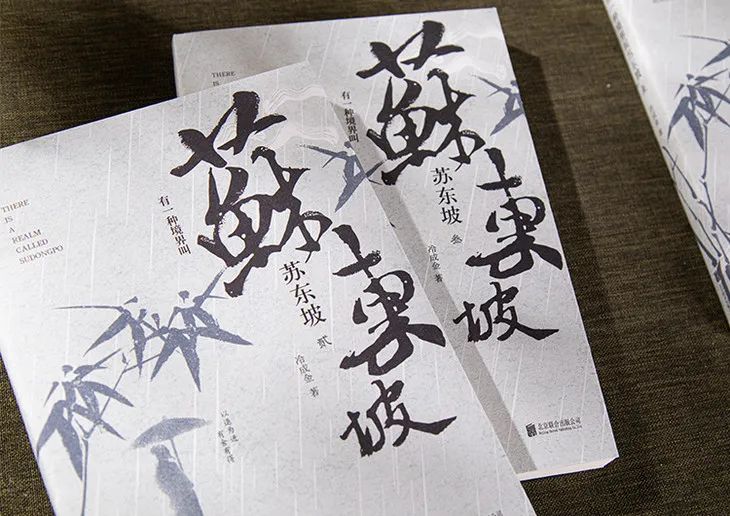 THERE
IS
A
REALM
CALLED
SUDONGPO
有一种境界叫
蘇東坡
苏东坡 贰
冷成金 著
以退为进
有舍有得
THERE
IS
有一种境界叫
蘇東坡
苏东坡 叁
冷成金 著
北京联合出版公司